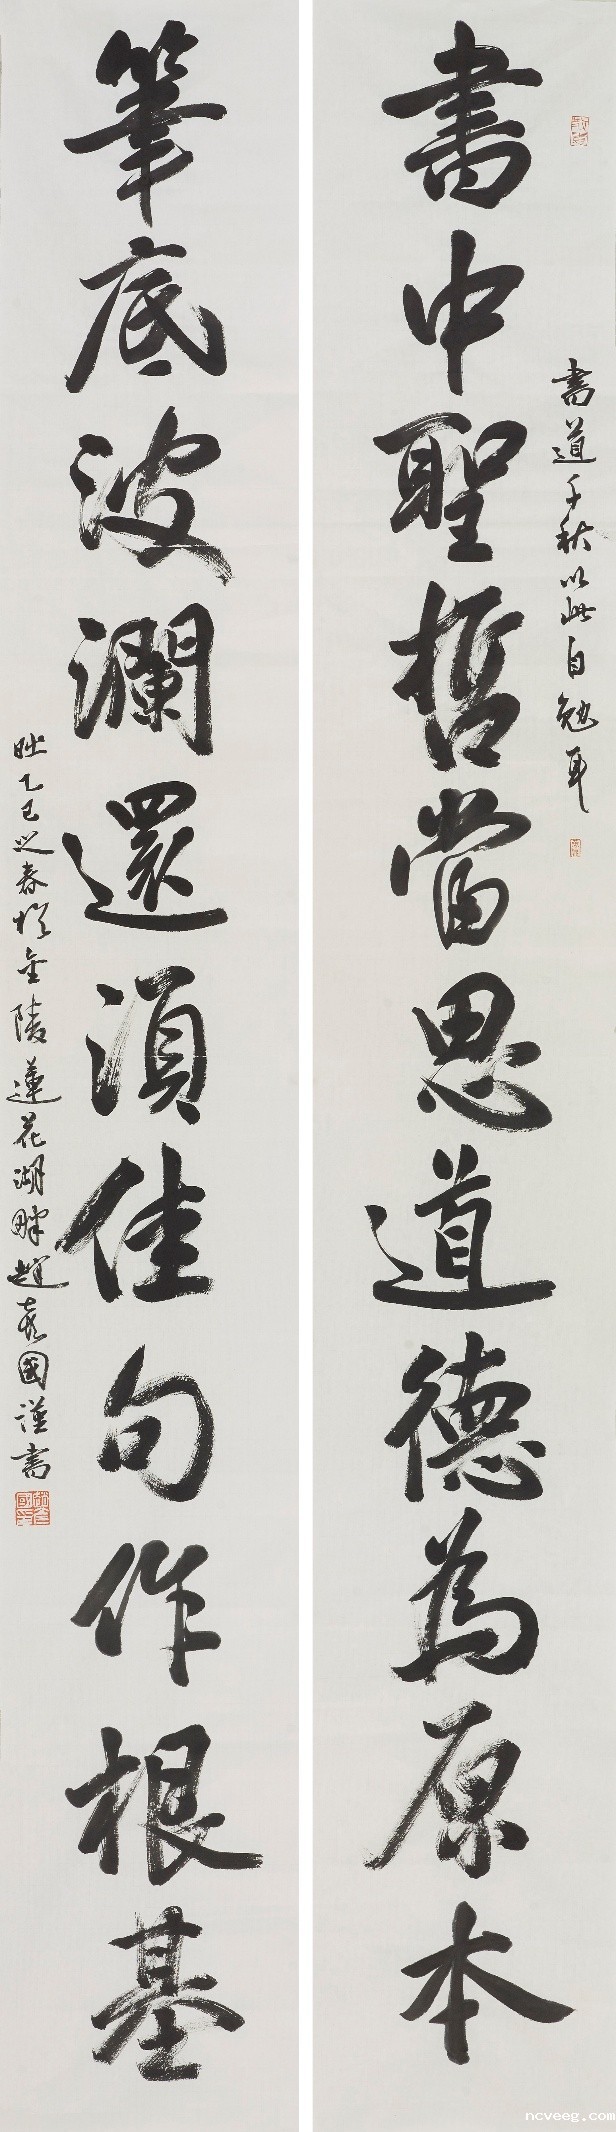 書中聖哲當思道德為原本
書道千秋以此自勉耳
筆底波瀾還須佳句作根基
時乙巳之春於金陵蓮花湖畔趙彥國謹書
ncveeg.com